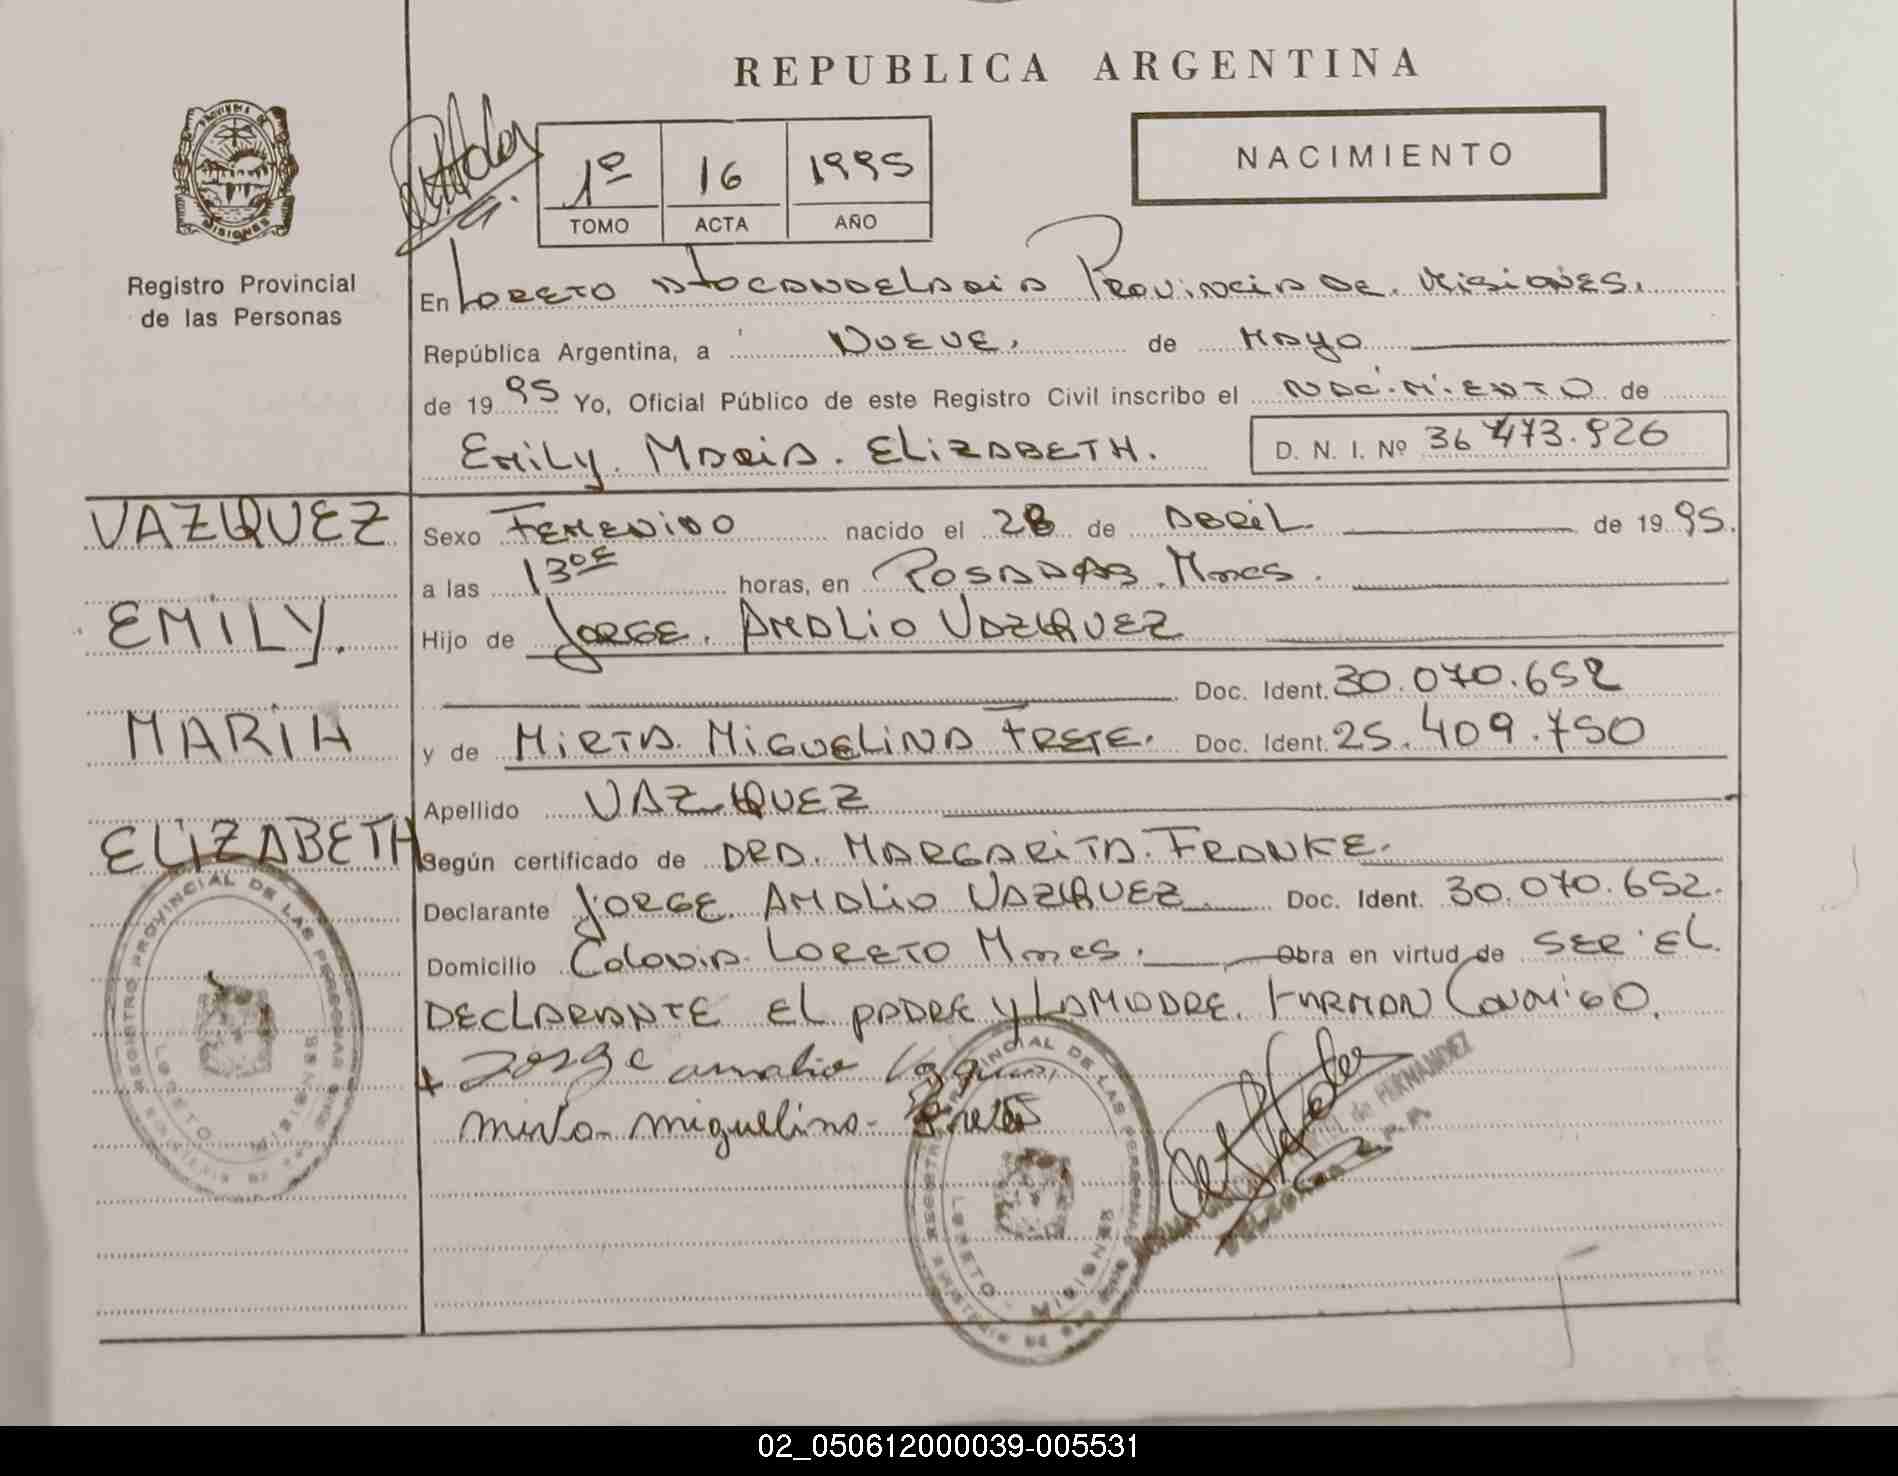 REPUBLICA ARGENTINA
PROVINCIA DE MISIONES
Registro Provincial
de las Personas
1º 16 1995
TOMO ACTA AÑO
NACIMIENTO
En LORETO DTOCANDELARIA PROVINCIA DE. MISIONES.
República Argentina, a NUEVE. de MAYO
de 1995 Yo, Oficial Público de este Registro Civil inscribo el NACIMIENTO de
EMILY. MARIA. ELIZABETH. D. N. I. Nº 36 473.926
VAZQUEZ
EMILY.
MARIA
ELIZABETH
Sexo FEMENINO nacido el 28 de ABRIL. de 1995.
a las 13 horas, en POSADAS. Mnes.
Hijo de JORGE. AMALIO VAZQUEZ
Doc. Ident. 30.070.652
y de MIRTA. MIGUELINA FRETE. Doc. Ident. 25.409.750
Apellido VAZQUEZ
Según certificado de DRA. MARGARITA. FRANKE.
Declarante JORGE. AMALIO VAZQUEZ. Doc. Ident. 30.070.652.
Domicilio Colonia LORETO Mnes. Obra en virtud de SER EL
DECLARANTE EL PADRE Y LAMADRE. FIRMAN CONMIGO.
+ Jorge amalio
mirta miguelina
REGISTRO PROVINCIAL DE LAS PERSONAS
LORETO MISIONES
REGISTRO PROVINCIAL DE LAS PERSONAS
LORETO MISIONES
de FERNANDEZ
02_050612000039-005531